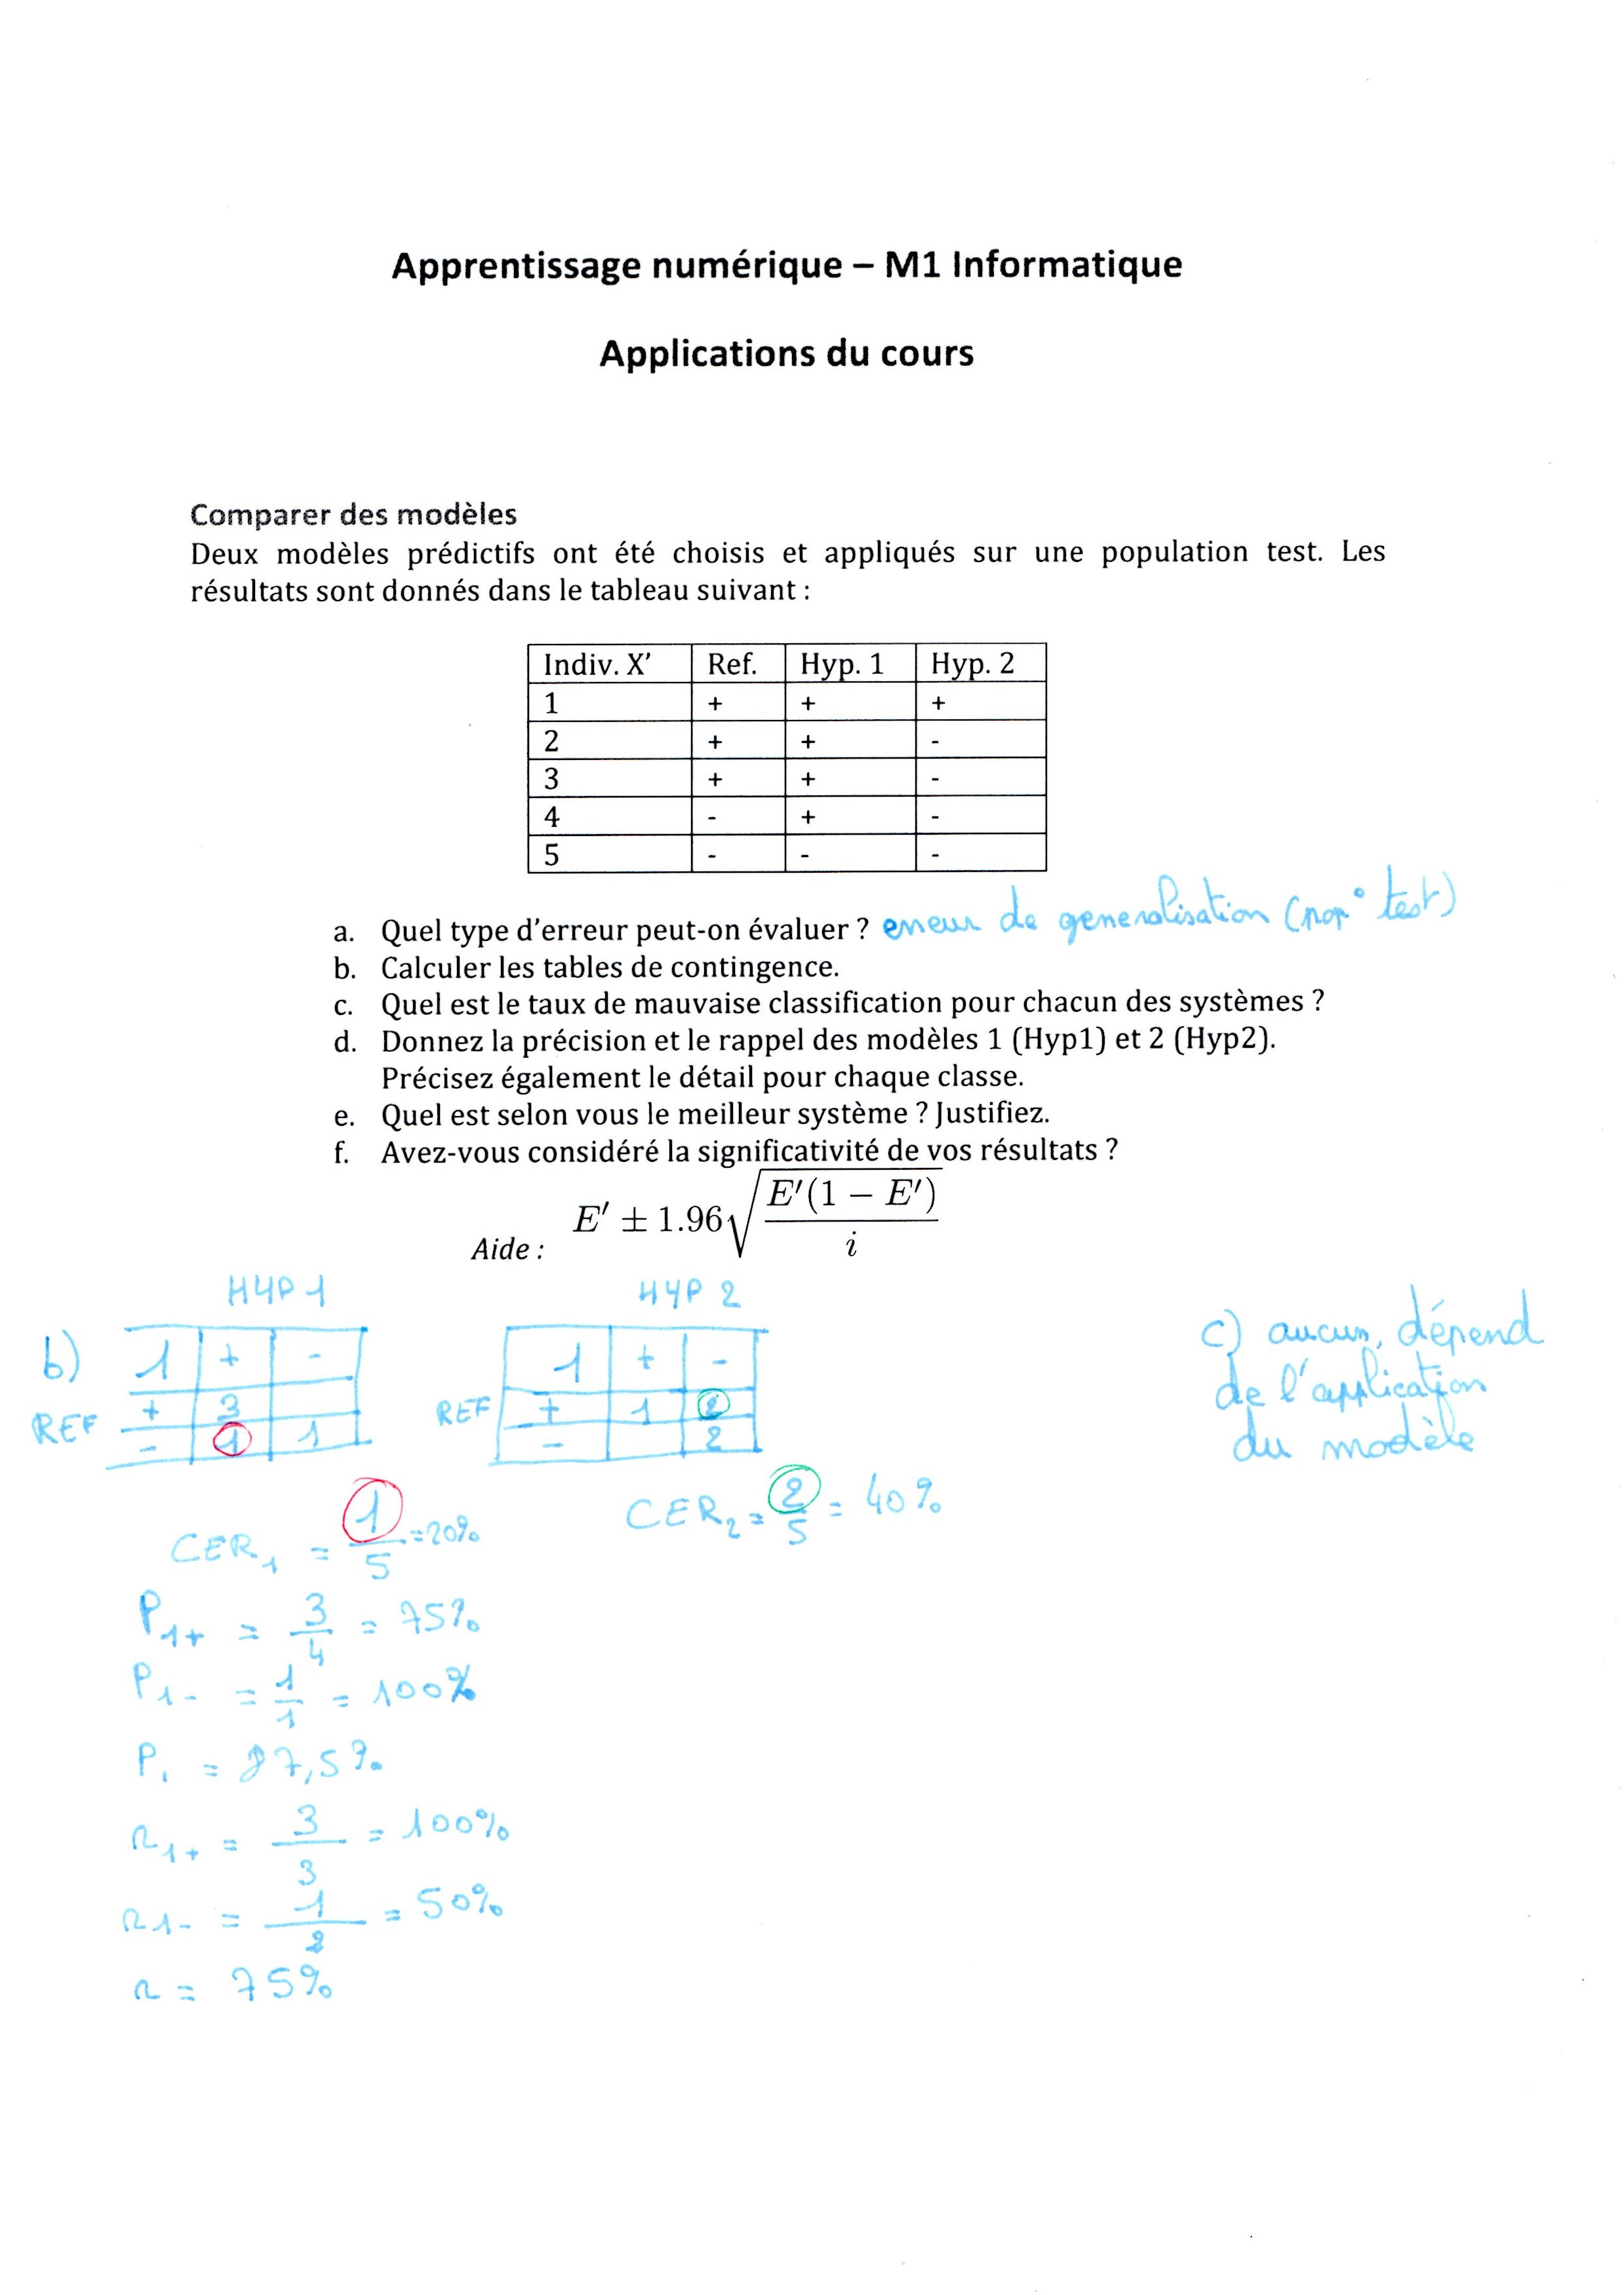 Apprentissage numérique – M1 Informatique
Applications du cours
Comparer des modèles
Deux modèles prédictifs ont été choisis et appliqués sur une population test. Les
résultats sont donnés dans le tableau suivant :
Indiv. X' Ref. Hyp. 1 Hyp. 2
1 + + +
2 + + -
3 + + -
4 - + -
5 - - -
a. Quel type d'erreur peut-on évaluer ? erreur de generalisation (pop° test)
b. Calculer les tables de contingence.
c. Quel est le taux de mauvaise classification pour chacun des systèmes ?
d. Donnez la précision et le rappel des modèles 1 (Hyp1) et 2 (Hyp2).
Précisez également le détail pour chaque classe.
e. Quel est selon vous le meilleur système ? Justifiez.
f. Avez-vous considéré la significativité de vos résultats ?
Aide : E' ± 1.96√(E'(1 − E')/i)
b)
HYP 1
1 + -
REF + 3
- 1 1
CER₁ = 1/5 = 20%
HYP 2
1 + -
REF + 1 2
- 2
CER₂ = 2/5 = 40%
c) aucun, dépend
de l'application
du modèle
P₁₊ = 3/4 = 75%
P₁₋ = 1/1 = 100%
P₁ = 87,5%
r₁₊ = 3/3 = 100%
r₁₋ = 1/2 = 50%
r = 75%